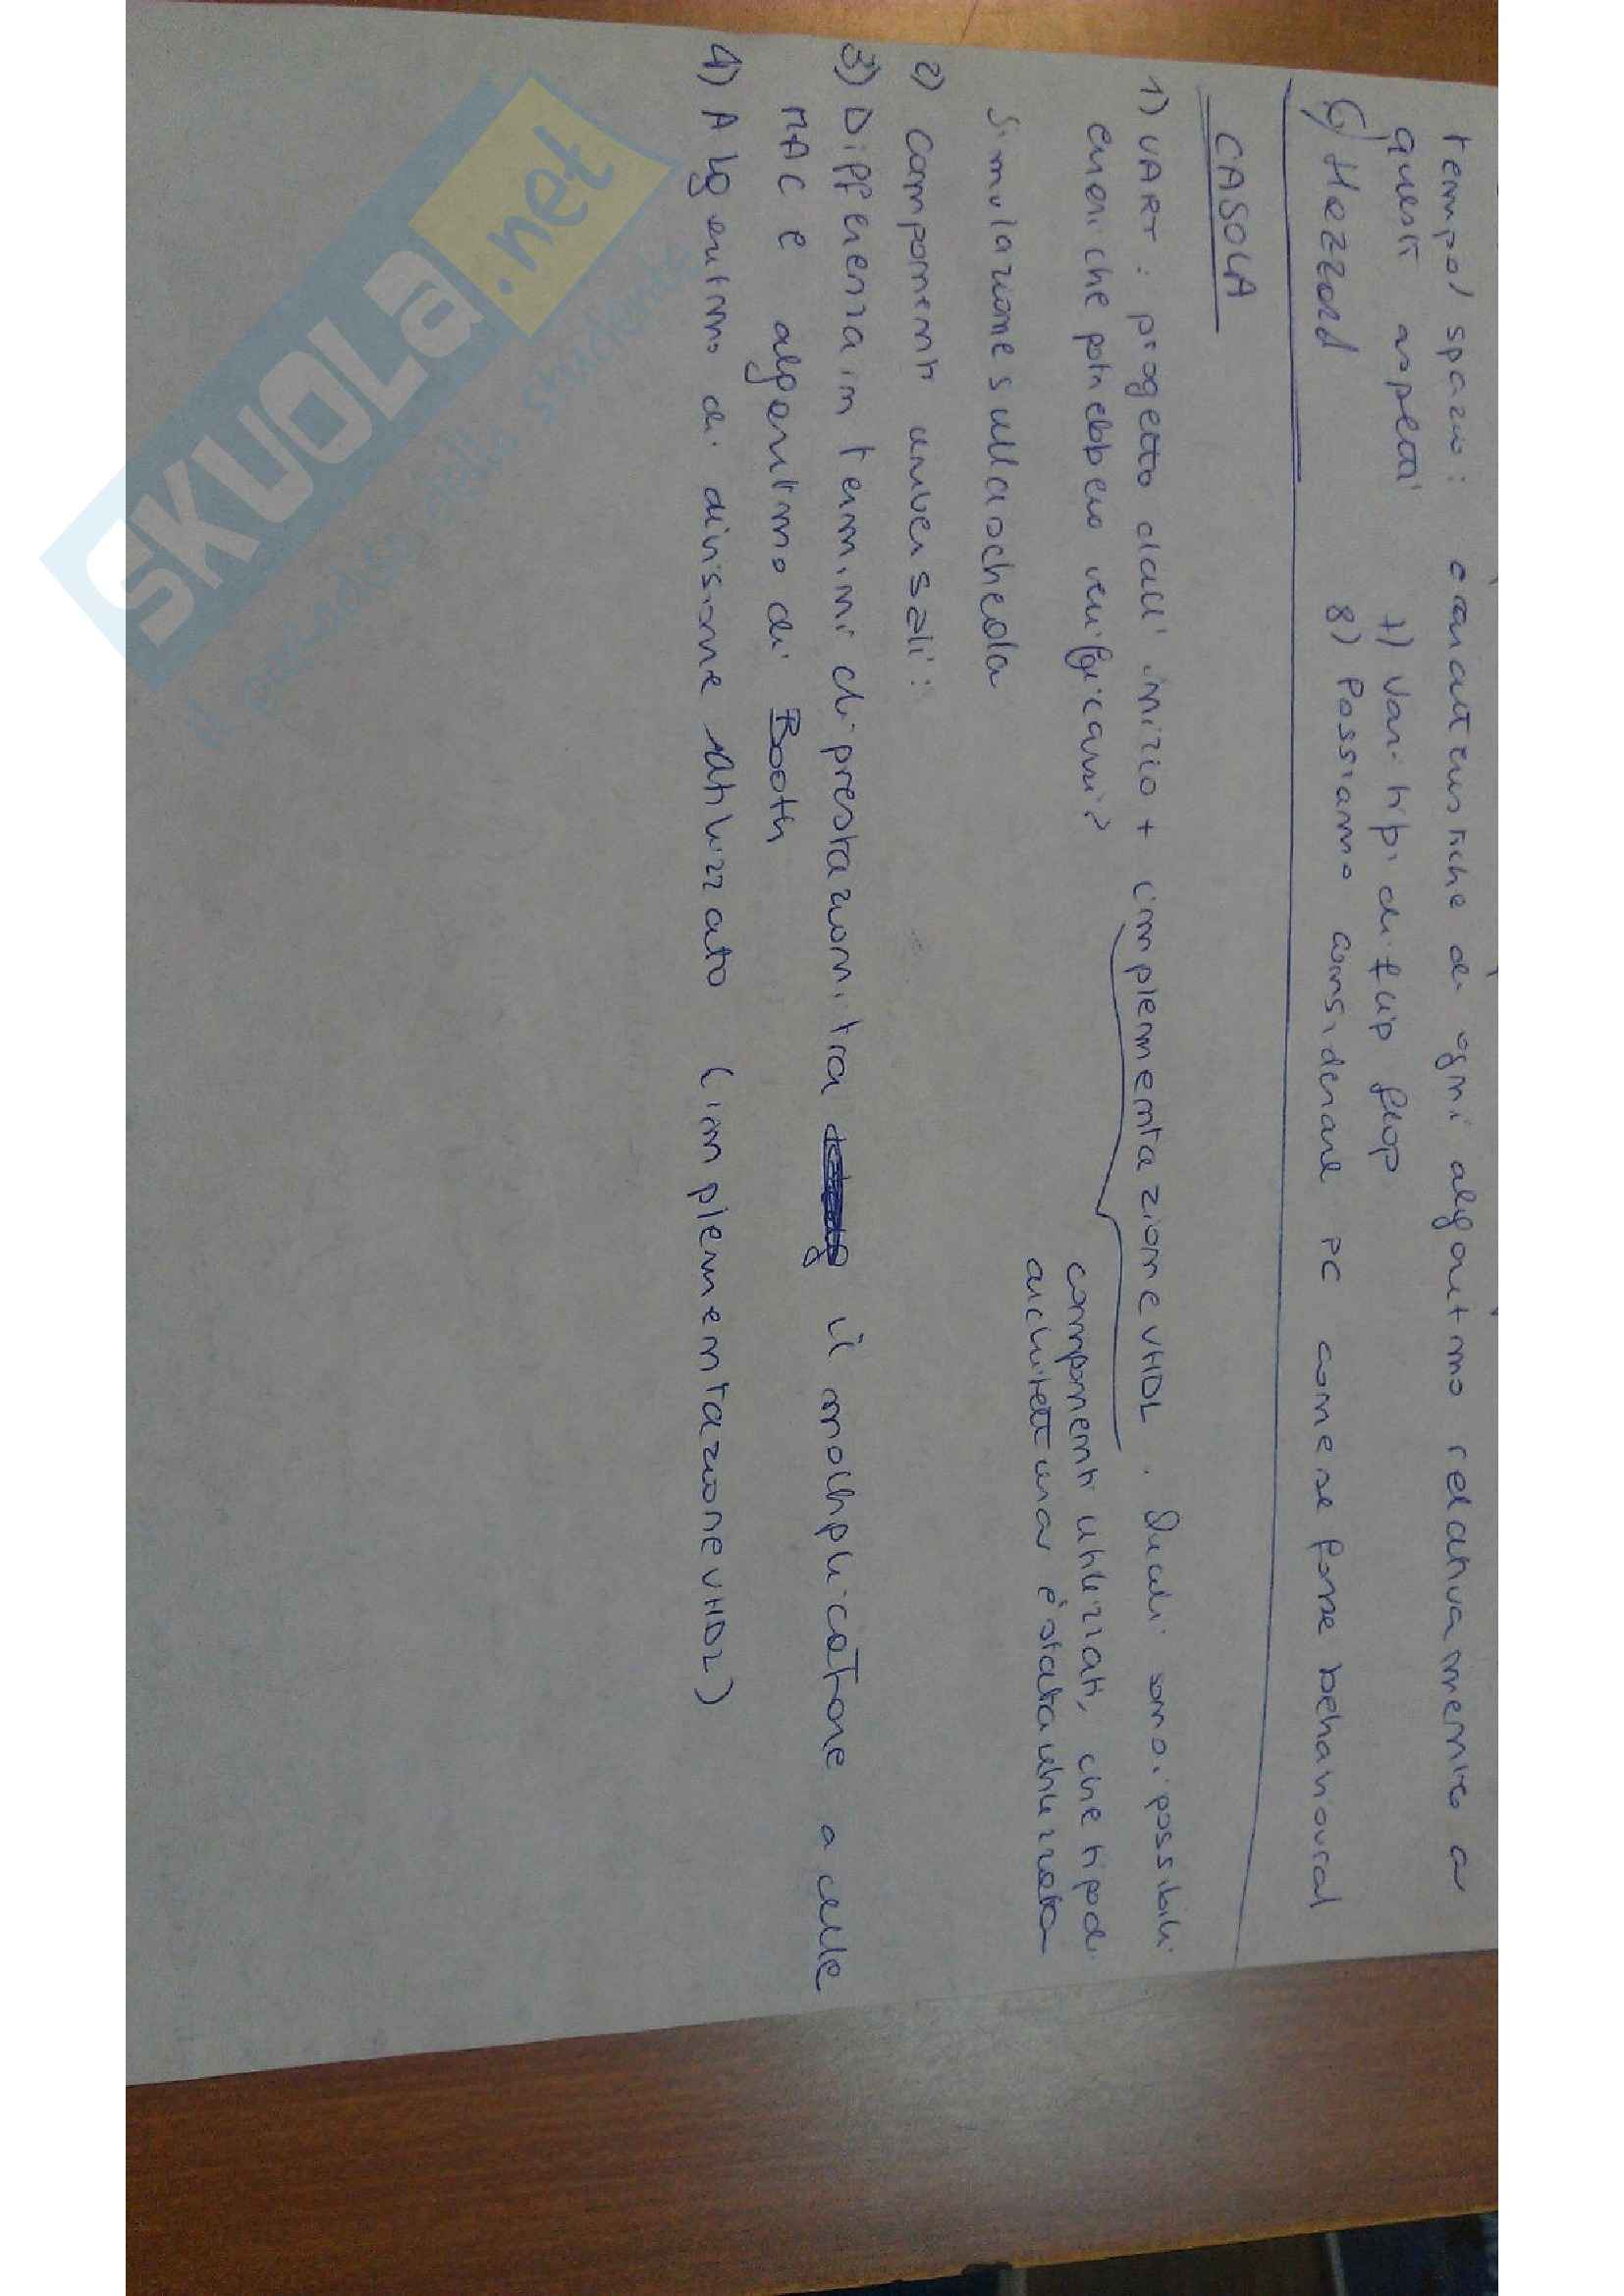 tempo/spazio: caratteristiche di ogni algoritmo relativamente a
questi aspetti
7) Vari tipi di flip flop
6) Hazzard
8) Possiamo considerare PC come se fosse behavioural
CASOLA
1) UART: progetto dall'inizio + implementazione VHDL. Quali sono i possibili
errori che potrebbero verificarsi?
componenti utilizzati, che tipo di
architettura è stata utilizzata
Simulazione sulla scheda
2) Componenti universali:
3) Differenza in termini di prestazioni tra il moltiplicatore a celle
MAC e algoritmo di Booth
4) Algoritmo di divisione utilizzato (implementazione VHDL)
SKUOLA.net
il paradiso dello studente